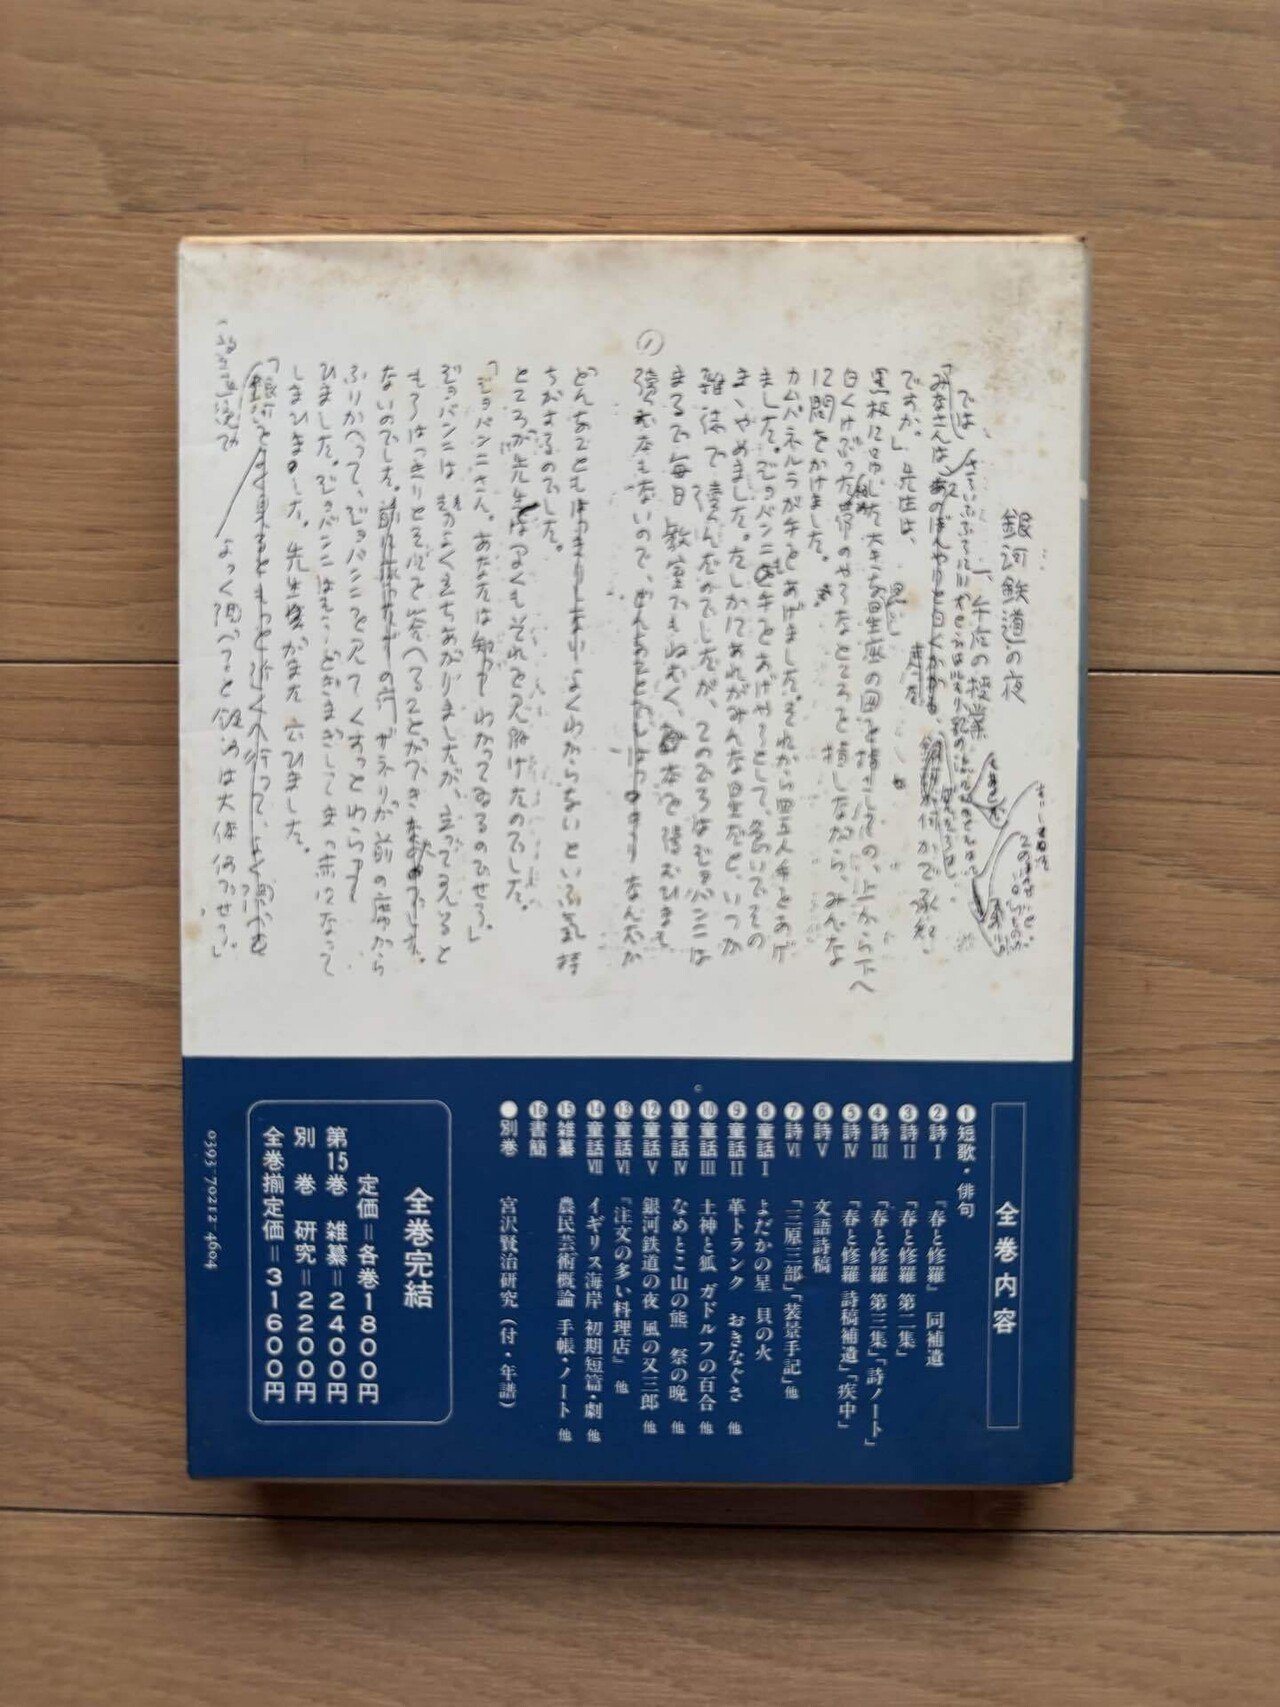 銀河鉄道の夜
一、午后の授業
「では
みなさんは、
ですか。」先生は、
黒板に吊した大きな黒い星座の図を指さしその、上から下へ
白くけぶった銀河帯のやうなところを指しながら、みんな
に問をかけました。
カムパネルラが手をあげました。それから四五人手をあげ
ました。ジョバンニも手をあげやうとして、急いでその
まゝやめました。たしかにあれがみんな星だと、いつか
雑誌で読んだのでしたが、このごろはジョバンニは
まるで毎日教室でもねむく、本を読むひまも
読む本もないので、なんだか
どんなこともよくわからないといふ気持
ちがするのでした。
ところが先生は早くもそれを見附けたのでした。
「ジョバンニさん。あなたはわかってゐるのでせう。」
ジョバンニは勢よく立ちあがりましたが、立って見ると
もうはっきりとそれを答へることができ
ないのでした。ザネリが前の席から
ふりかへって、ジョバンニを見てくすっとわら
ひました。ジョバンニはもうどぎまぎしてまっ赤になって
しまひました。先生がまた云ひました。
よっく調べると銀河は大体何でせう。」
全巻内容
❶短歌・俳句
❷詩Ⅰ 「春と修羅」 同補遺
❸詩Ⅱ 「春と修羅 第二集」
❹詩Ⅲ 「春と修羅 第三集」「詩ノート」
❺詩Ⅳ 「春と修羅 詩稿補遺」「疾中」
❻詩Ⅴ 文語詩稿
❼詩Ⅵ 「三原三部」「装景手記」他
❽童話Ⅰ よだかの星 貝の火
❾童話Ⅱ 革トランク おきなぐさ 他
❿童話Ⅲ 土神と狐 ガドルフの百合 他
⓫童話Ⅳ なめとこ山の熊 祭の晩 他
⓬童話Ⅴ 銀河鉄道の夜 風の又三郎 他
⓭童話Ⅵ 『注文の多い料理店』 他
⓮童話Ⅶ イギリス海岸 初期短篇・劇 他
⓯雑纂 農民芸術概論 手帳・ノート 他
⓰書簡
●別巻 宮沢賢治研究（付・年譜）
全巻完結
定価＝各巻1800円
第15巻 雑纂＝2400円
別巻 研究＝2200円
全巻揃定価＝31600円
0393-70212-4604